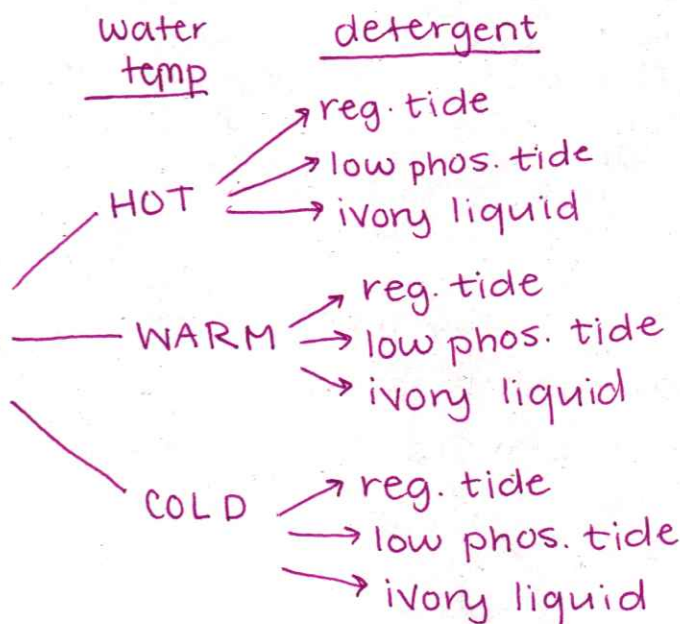 water temp
detergent
HOT
reg. tide
low phos. tide
ivory liquid
WARM
reg. tide
low phos. tide
ivory liquid
COLD
reg. tide
low phos. tide
ivory liquid